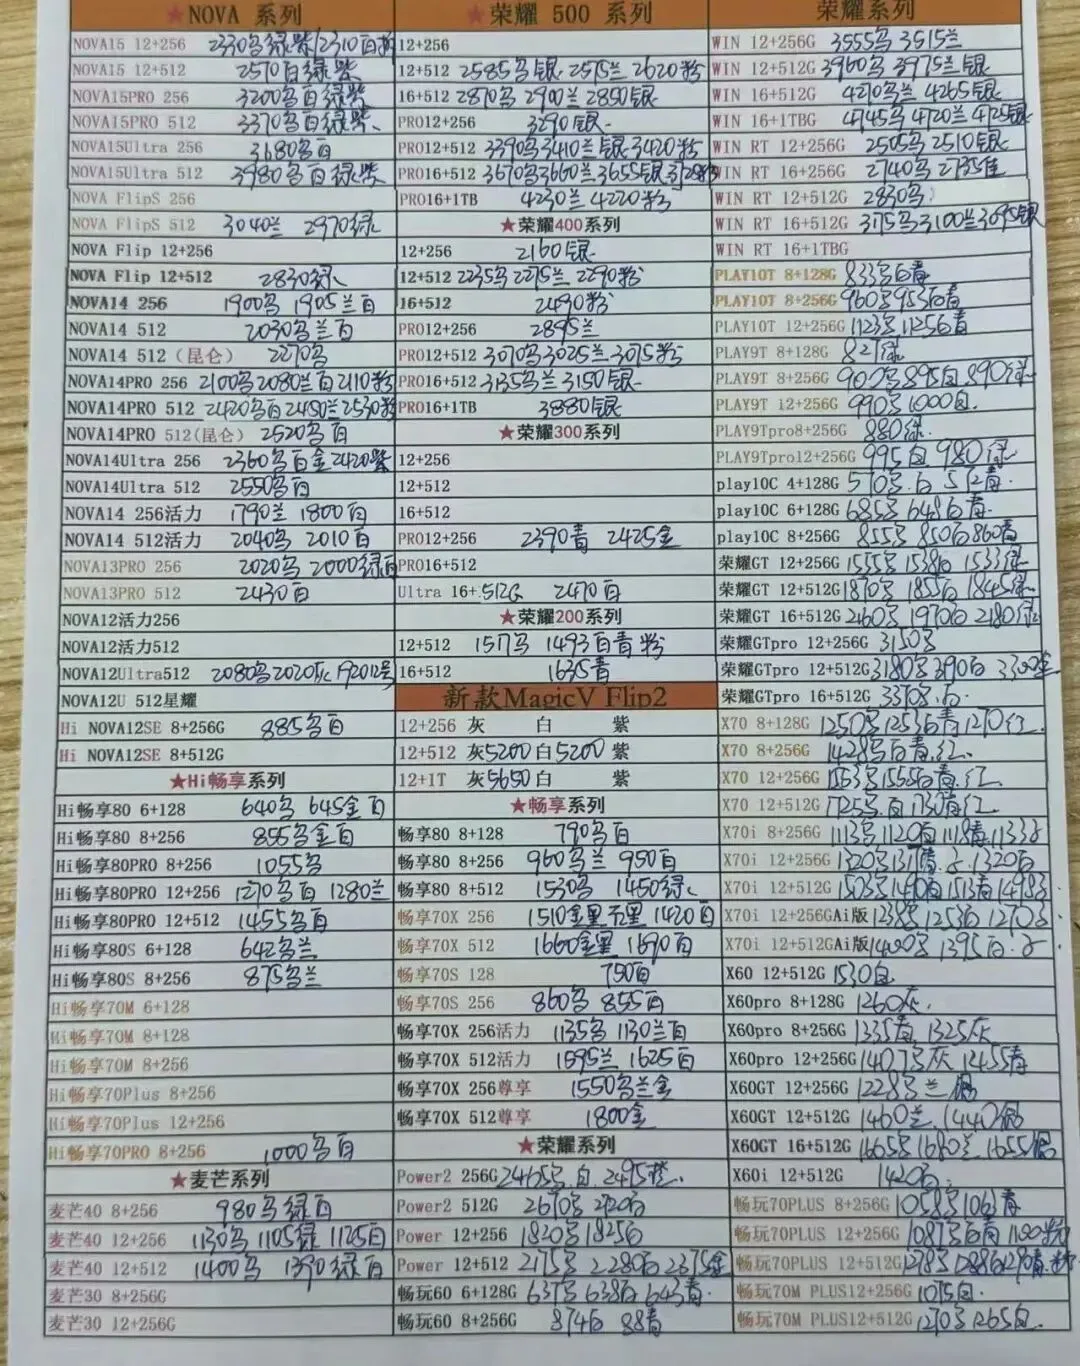 ★NOVA 系列
NOVA15 12+256 2330乌绿紫/2310白粉
NOVA15 12+512 2570白绿紫
NOVA15PRO 256 3200乌白绿紫
NOVA15PRO 512 3370乌白绿紫
NOVA15Ultra 256 3680乌白
NOVA15Ultra 512 3980乌白绿紫
NOVA FlipS 256
NOVA FlipS 512 3040兰 2970绿
NOVA Flip 12+256
NOVA Flip 12+512 2830绿
NOVA14 256 1900乌 1905兰白
NOVA14 512 2030乌兰白
NOVA14 512（昆仑） 2270乌
NOVA14PRO 256 2100乌2080兰白2110粉
NOVA14PRO 512 2420乌白2450兰2530粉
NOVA14PRO 512(昆仑) 2520乌白
NOVA14Ultra 256 2360乌白金2420紫
NOVA14Ultra 512 2550乌白
NOVA14 256活力 1790兰 1800白
NOVA14 512活力 2040乌 2010白
NOVA13PRO 256 2020乌 2000绿白
NOVA13PRO 512 2430白
NOVA12活力256
NOVA12活力512
NOVA12Ultra512 2080乌2020灰
NOVA12U 512星耀
Hi NOVA12SE 8+256G 885乌白
Hi NOVA12SE 8+512G
★Hi畅享系列
Hi畅享80 6+128 640乌 645金白
Hi畅享80 8+256 855乌金白
Hi畅享80PRO 8+256 1055乌
Hi畅享80PRO 12+256 1270乌白 1280兰
Hi畅享80PRO 12+512 1455乌白
Hi畅享80S 6+128 642乌兰
Hi畅享80S 8+256 875乌兰
Hi畅享70M 6+128
Hi畅享70M 8+128
Hi畅享70M 8+256
Hi畅享70Plus 8+256
Hi畅享70Plus 12+256
Hi畅享70PRO 8+256 1000乌白
★麦芒系列
麦芒40 8+256 980乌绿白
麦芒40 12+256 1130乌 1105绿 1125白
麦芒40 12+512 1400乌 1390绿白
麦芒30 8+256G
麦芒30 12+256G
★荣耀 500 系列
12+256
12+512 2585乌银 2575兰 2620粉
16+512 2870乌 2900兰 2850银
PRO12+256 3290银
PRO12+512 3390乌3410兰银3420粉
PRO16+512 3670乌3660兰3655银
PRO16+1TB 4230兰 4220粉
★荣耀400系列
12+256 2160银
12+512 2235乌2275兰 2290粉
16+512 2490粉
PRO12+256 2895兰
PRO12+512 3070乌3025兰3075粉
PRO16+512 3135乌兰 3150银
PRO16+1TB 3880银
★荣耀300系列
12+256
12+512
16+512
PRO12+256 2390青 2425金
PRO16+512
Ultra 16+512G 2470白
★荣耀200系列
12+512 1517乌 1493白青 粉
16+512 1635青
新款MagicV Flip2
12+256 灰 白 紫
12+512 灰5200白5200 紫
12+1T 灰5650白 紫
★畅享系列
畅享80 8+128 790乌白
畅享80 8+256 960乌兰 950白
畅享80 8+512 1530乌 1450绿
畅享70X 256 1510金黑 1420白
畅享70X 512 1660金黑 1690白
畅享70S 128 750白
畅享70S 256 860乌 855白
畅享70X 256活力 1135乌 1130兰白
畅享70X 512活力 1595兰 1625白
畅享70X 256尊享 1550乌兰金
畅享70X 512尊享 1800金
★荣耀系列
Power2 256G 2465乌.白. 2495橙.
Power2 512G 2670乌 2720白
Power 12+256 1820乌1825白
Power 12+512 2175乌 2280白 2375金
畅玩60 6+128G 637乌 638白 643青.
畅玩60 8+256G 874白 88青
荣耀系列
WIN 12+256G 3555乌 3515兰
WIN 12+512G 3960乌 3975兰银
WIN 16+512G 4270乌兰 4265银
WIN 16+1TBG 4745乌 4720兰 4725银
WIN RT 12+256G 2505乌 2510银
WIN RT 16+256G 2740乌
WIN RT 12+512G 2830乌
WIN RT 16+512G 3175乌3100兰3095银
WIN RT 16+1TBG
PLAY10T 8+128G 833乌白青
PLAY10T 8+256G 960乌953白青
PLAY10T 12+256G 1123乌1125白青
PLAY9T 8+128G 827绿
PLAY9T 8+256G 900乌895白890绿
PLAY9T 12+256G 990乌1000白.
PLAY9Tpro8+256G 880绿.
PLAY9Tpro12+256G 995白 980绿
play10C 4+128G 570乌.白 572青.
play10C 6+128G 685乌 648白青
play10C 8+256G 855乌 850白860青
荣耀GT 12+256G 1555乌 1538白 1533绿
荣耀GT 12+512G 1870乌 1855白 1845绿
荣耀GT 16+512G 2160乌 1970白 2180绿
荣耀GTpro 12+256G 3150乌
荣耀GTpro 12+512G 3180乌 3190白 3300金
荣耀GTpro 16+512G 3370乌.白.
X70 8+128G 1250乌1253白青1270红.
X70 8+256G 1428乌白青.红.
X70 12+256G 1553乌1555白青.红
X70 12+512G 1725乌.白 1730青红.
X70i 8+256G 1113乌1120白 1118青
X70i 12+256G 1320乌 1320白
X70i 12+512G 1503乌1490白1513青
X70i 12+256GAi版 1238乌 1253白
X70i 12+512GAi版 1400乌 1395白
X60 12+512G 1530白
X60pro 8+128G 1260灰.
X60pro 8+256G 1335青 1325灰
X60pro 12+256G 1407乌灰 1455青
X60GT 12+256G 1228乌兰 银
X60GT 12+512G 1460兰 1440银
X60GT 16+512G 1665乌 1680兰 1655银
X60i 12+512G 1420白
畅玩70PLUS 8+256G 1058乌1061青
畅玩70PLUS 12+256G 1087乌白青 1100粉
畅玩70PLUS 12+512G 1278乌1288白1290青.粉
畅玩70M PLUS12+256G 1075白.
畅玩70M PLUS12+512G 1270乌 1265白.